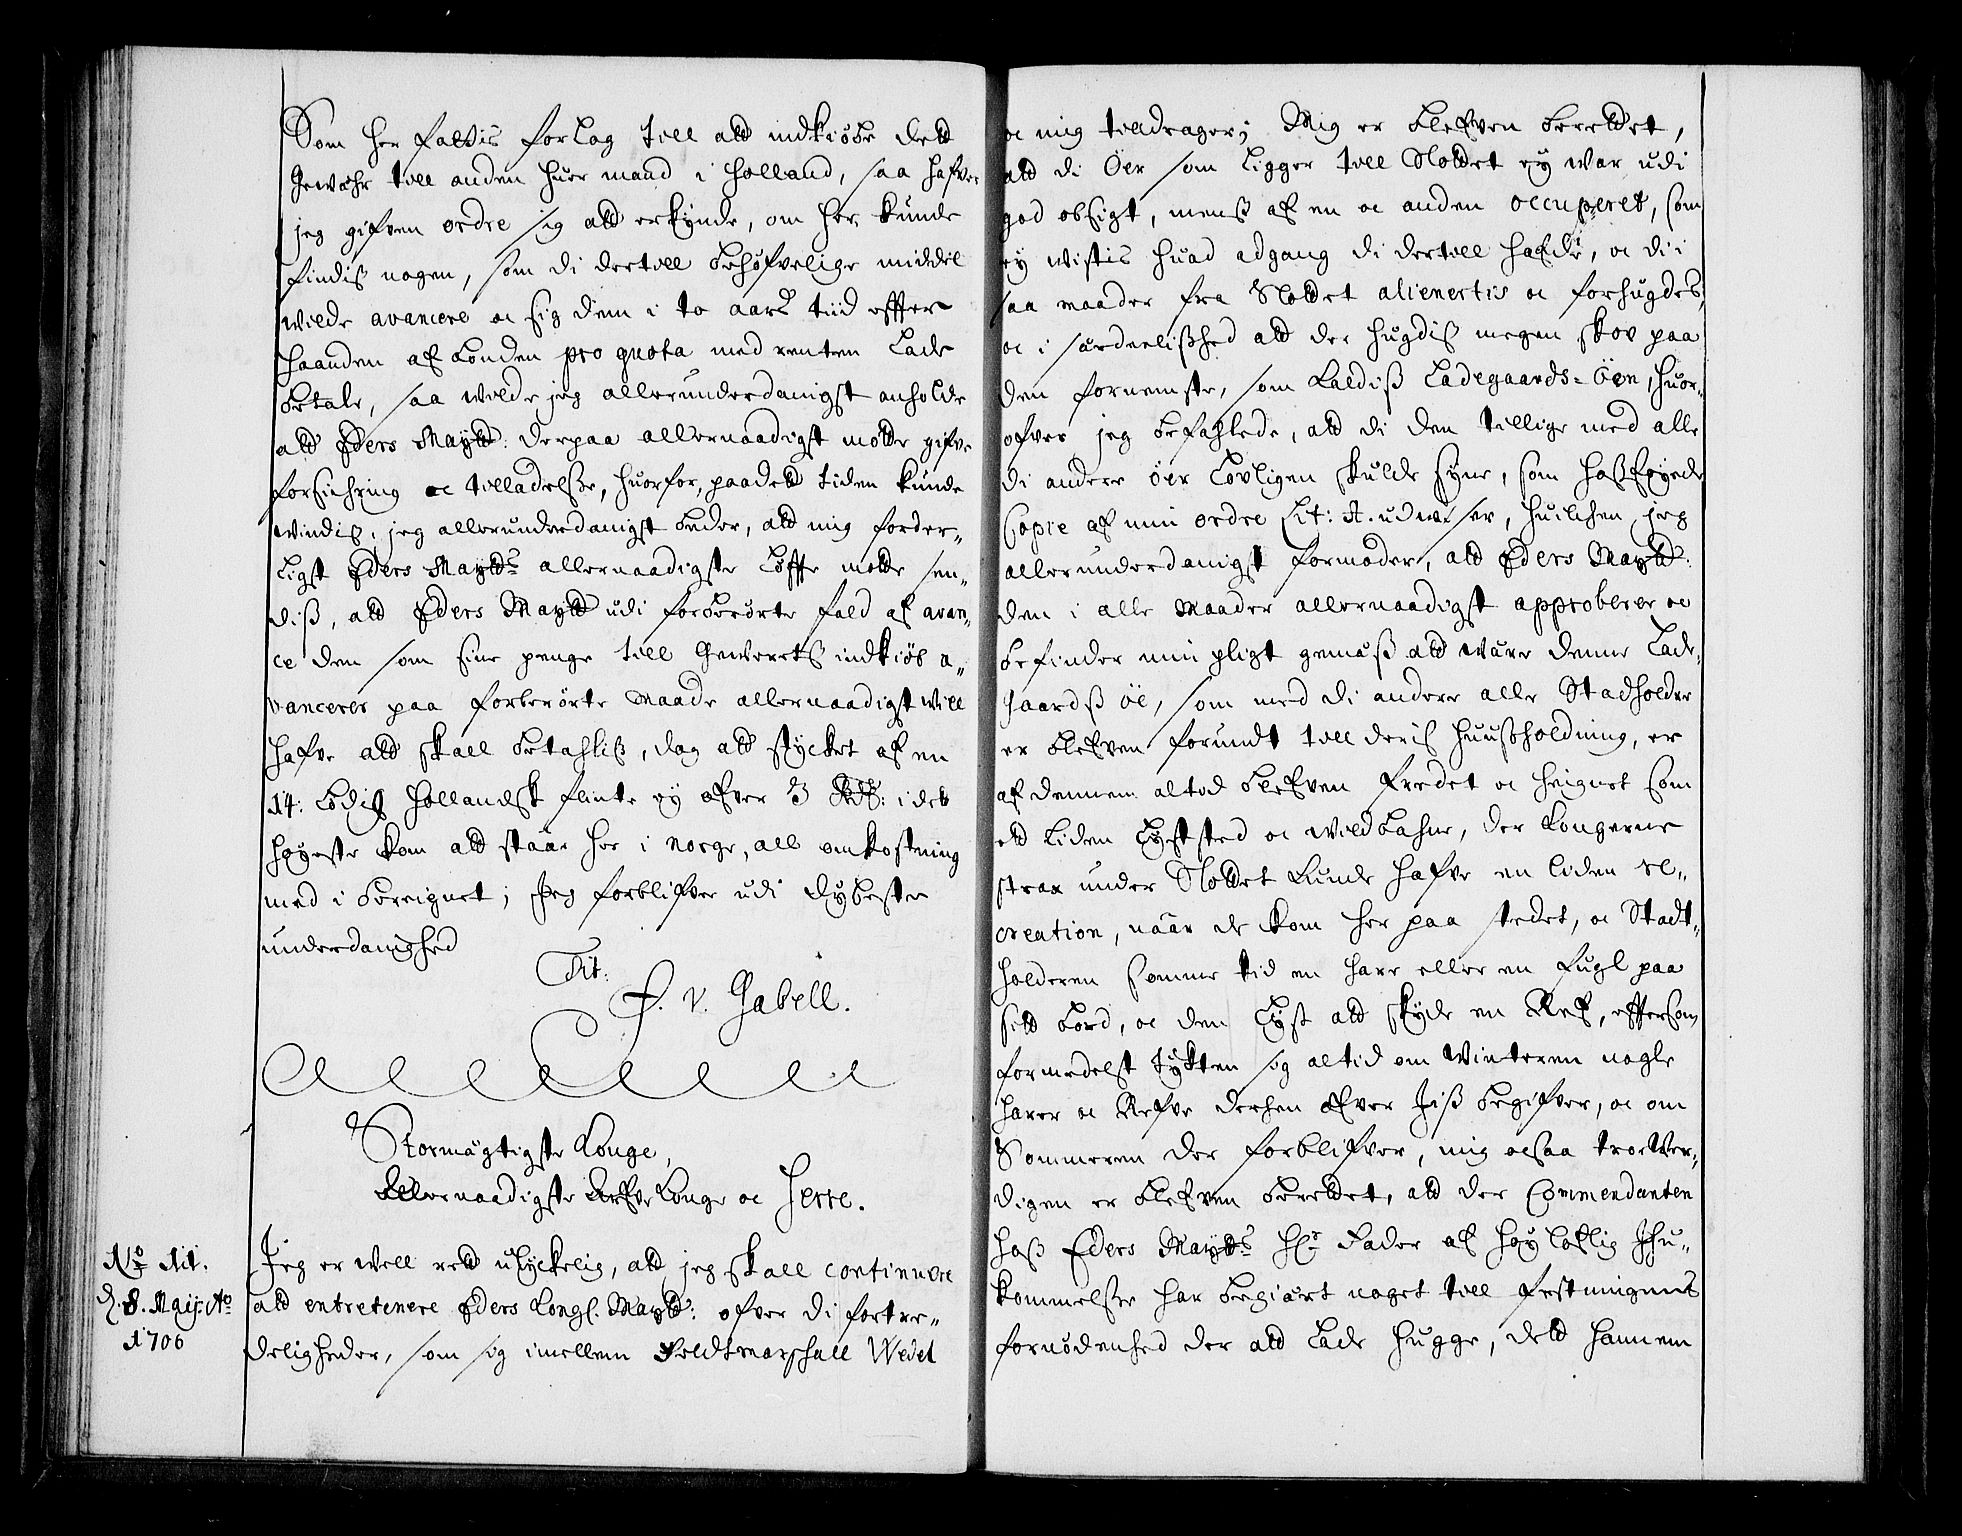 Som her fattis forlag till att indkiöbe dett
gewähr till anden huer mand i Holland, saa hafver
jeg gifven ordre sig att erkynde, om her kunde
findiß nogen, som di dertill behøfvelige middel
wilde avancere oc sig dem i to aars tiid effter
haanden af bonden pro quota med renten lade
betale, saa wilde jeg allerunderdanigst anholde
att Eders Maytt: derpaa allernaadigst motte gifve
forsichring oc tilladelße, huorfor, paadett tiden kunde
windiß, jeg allerunderdanigst beder, att mig forder-
ligst Eders Maytts allernaadigste løffte motte sen-
diß, att Eders Maytt udi forberørte fald af avan-
ce den som sine penge till Gewerets indkiöb a-
vancerer paa forberørte maade allernaadigst will
hafve att skall betahliß, dog att stycket af en
14: lødig hollandsk flinte ey ofver 3 Rdr: i det
høyeste kom att staae her i Norge, all omkostning
med i beregnet; Jeg forblifver udi dybeste
underdanighed
Tit:
F. v. Gabell.
Stormägtigste Konge,
Allernaadigste Arfve Konge oc Herre.
No 111.
d. 8. Maij Ao
1706
Jeg er well rett ulyckelig, att jeg skall continuere
att entretenere Eders Kongl. Maytt: ofver di fortre-
deligheder, som sig imellem Feldtmarschall Wedel
oc mig tilldrager; Mig er blefven berettet,
att di Öer som ligger till Slottet ey war udi
god obsigt, menß af en oc anden occuperet, som
ey wistis huad adgang di dertill hafde, oc di i
saa maader fra Slottet alienertis oc forhugdes,
oc i särdeelißhed att der hugdiß megen skov paa
den fornemste, som kaldiß Ladegaards=Öen, huor-
ofver jeg befahlede, att di den tillige med alle
di andere öer lovligen skulde syne, som hoßføyede
Copie af min ordre Lit: A. udwiser, huilchen jeg
allerunderdanigst formoder, att Eders Maytt:
den i alle maader allernaadigst approberer oc
befinder min pligt gemäß att wäre denne Lade-
gaardß öe, som med di andere alle Stadholder
er blefven forundt till deris huußholdning, er
af dennem altid blefven fredet oc heignet som
ett liden lyststed oc wildbahne, der Kongerne
strax under Slottet kunde hafve en liden re-
creation, näär de kom her paa stedet, oc Stadt-
holderen somme tid en hare eller en fugl paa
sitt bord, oc den lyst att skyde en Ref, effterson
formedelst tykten sig altid om Winteren nogle
harer oc Refve derhen ofver Jiß begifver, oc om
Sommeren der forblifver, mig ocsaa troewer-
digen er blefven berettet, att der Commendanten
hoß Eders Maytts Hr Fader af høylofflig Ihu-
kommelße har begiärt noget till festningens
fornødenhed der att lade hugge, dett hannem